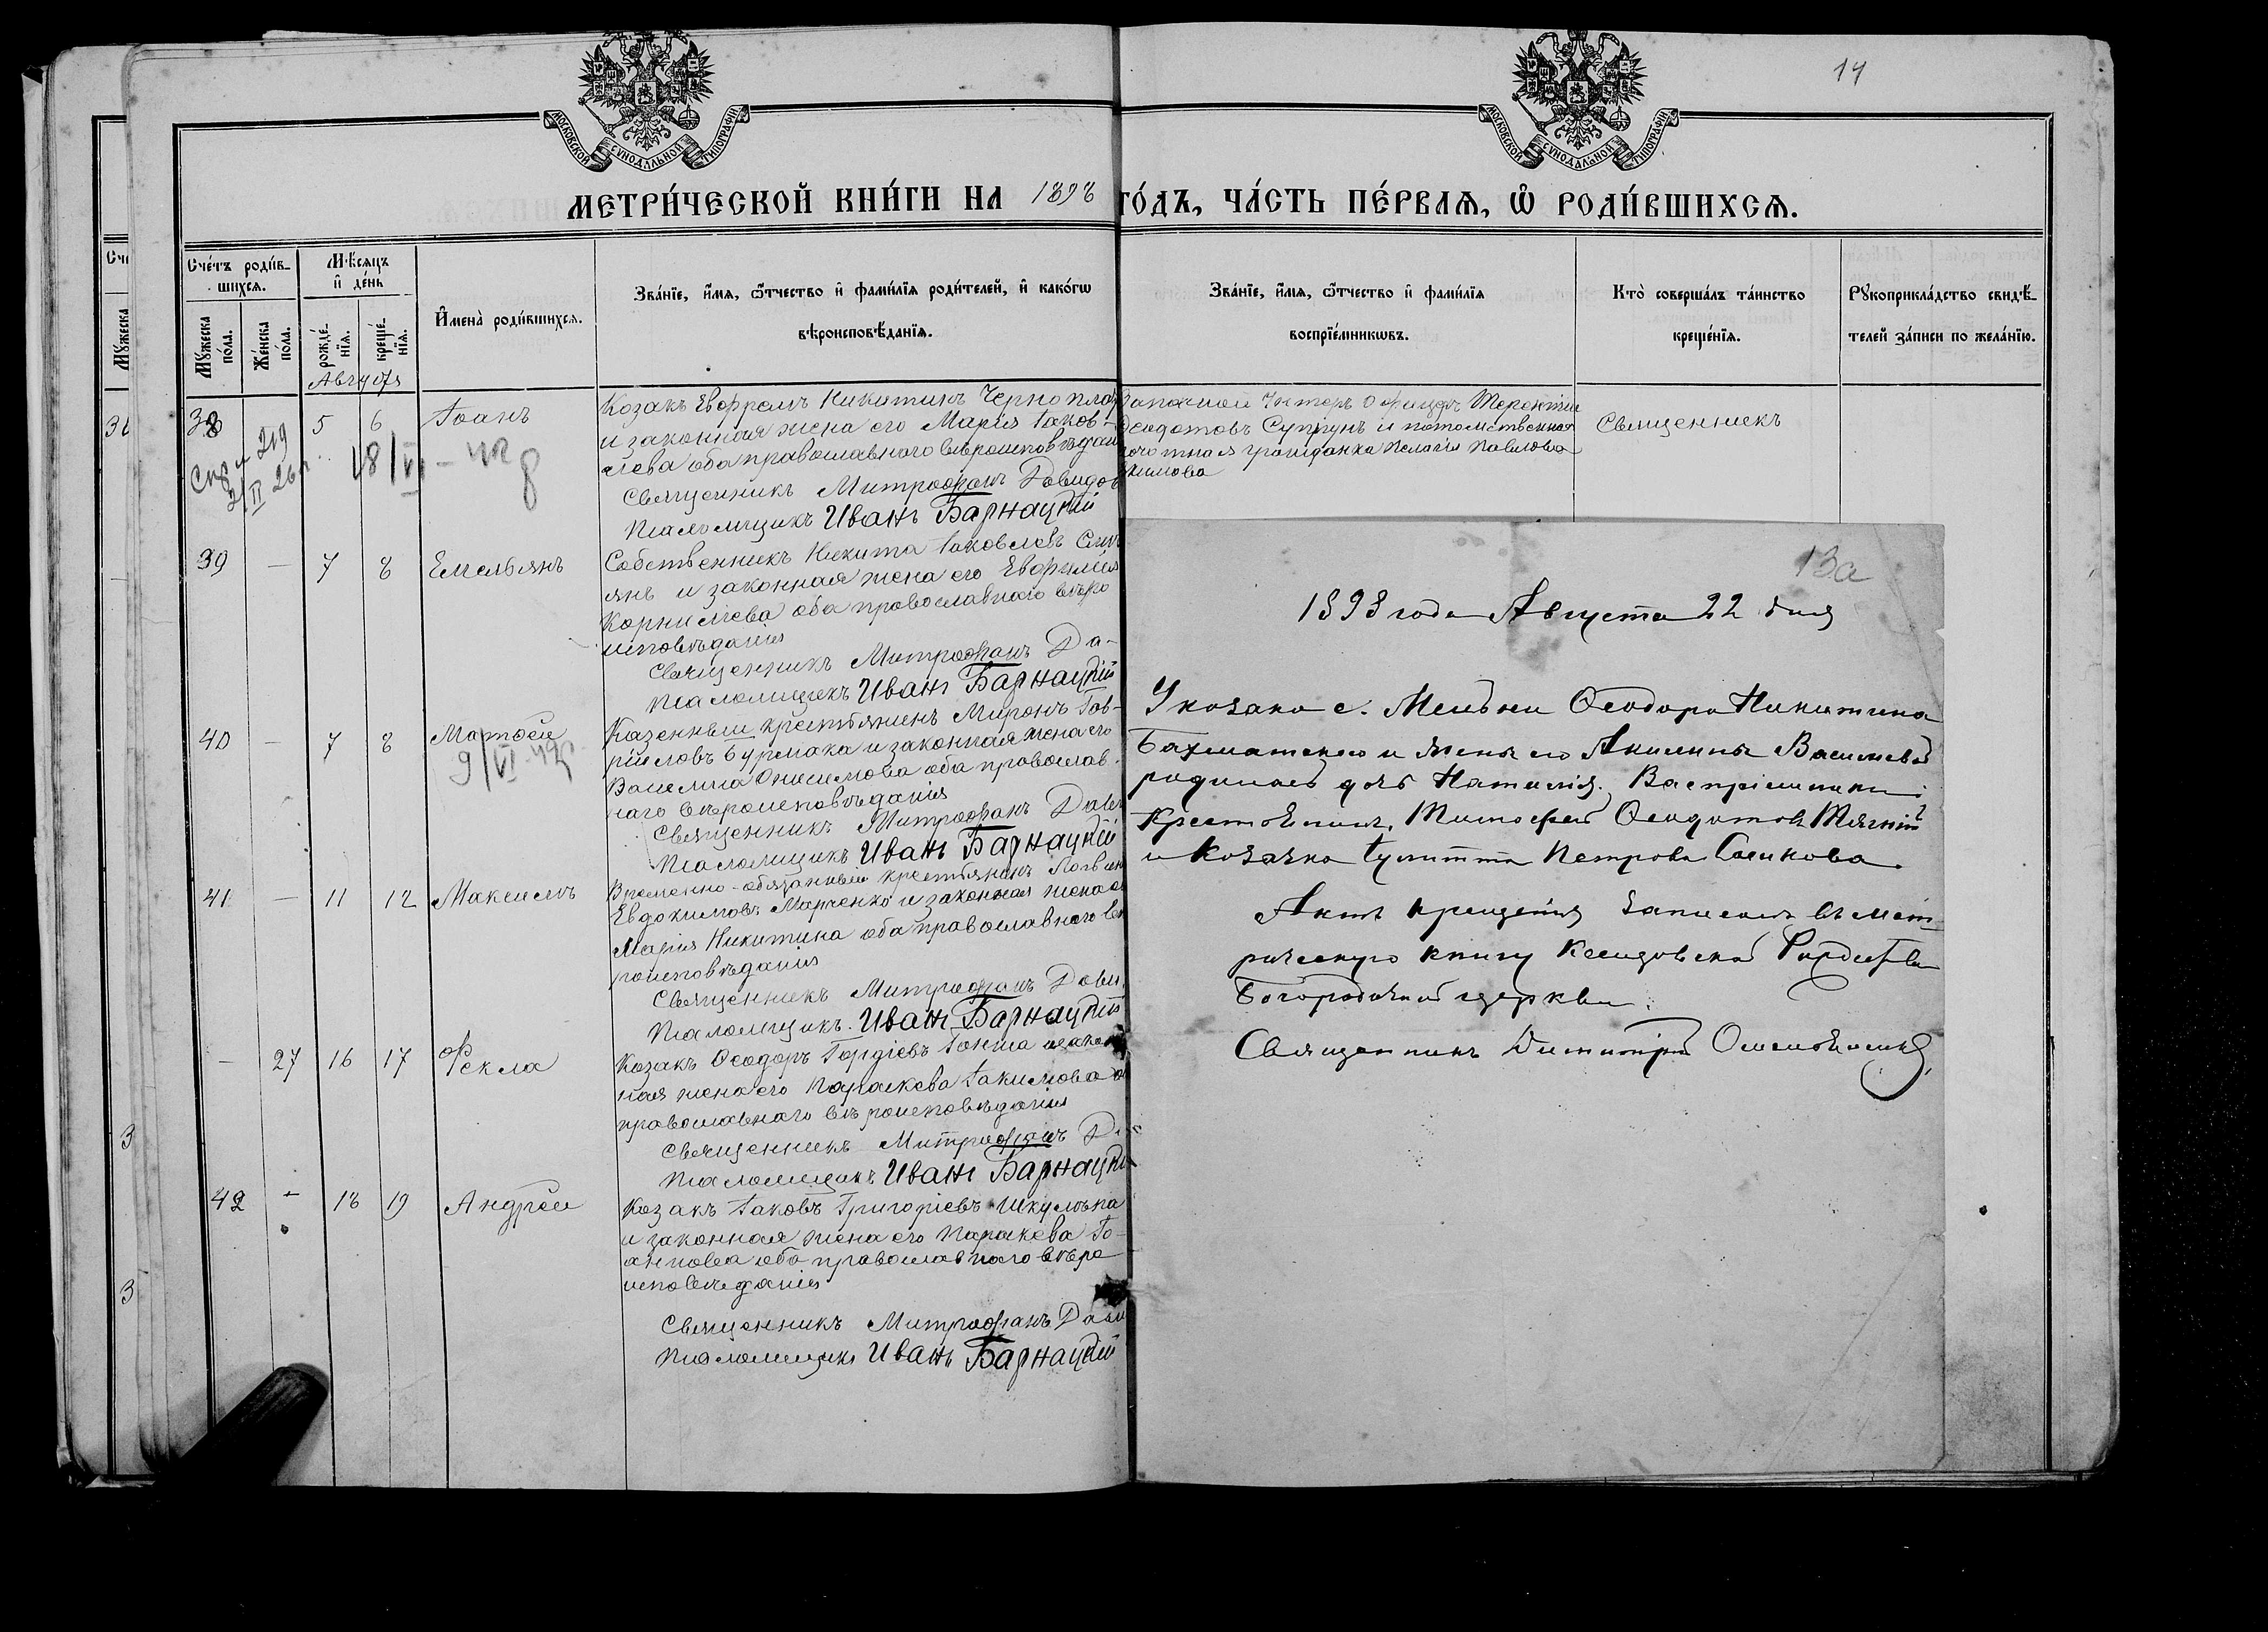 14
МОСКОВСКОЙ СУНОДАЛЬНОЙ ТИПОГРАФІИ
МОСКОВСКОЙ СУНОДАЛЬНОЙ ТИПОГРАФІИ
МЕТРИ́ЧЕСКОЙ КНИ́ГИ НА 1898
ГО́ДЪ, ЧА́СТЬ ПЕ́РВАѦ, Ѽ РОДИ́ВШИХСѦ.
Сче́тъ роди́в-
шихся.
Мѣ́сяцъ
и҆ де́нь
Мꙋ́жеска
по́ла.
Же́нска
по́ла.
рожде́-
нїя.
креще́-
нїя.
И҆мена̀ роди́вшихся.
Зва́нїе, и҆́мя, ѻ҆́тчество и҆ фами́лїя роди́телей, и҆ како́гѡ
вѣроисповѣ́данїя.
Зва́нїе, и҆́мя, ѻ҆́тчество и҆ фами́лїя
воспрїе́мникѡвъ.
Кто̀ соверша́лъ та́инство
креще́нїя.
Рꙋкоприкла́дство свидѣ́-
телей за́писи по жела́нїю.
Августъ
38 5 6 Іоанъ
Козакъ Евфремъ Никитинъ Черно
и законная жена его Марія Іаков-
лева оба православнаго вѣроисповѣдан
Священникъ Митрофанъ Давидов
Псаломщикъ Иванъ Барнацкій
Запасной Унтеръ Офицеръ Терентій
Феодотовъ Супрунъ и потомственная
почотная гражданка Пелагія Павлова
Священникъ
18/VI - 42
39 — 7 8 Емельянъ
Собственникъ Никита Іаковлевъ
янъ и законная жена его Евфимія
Корнилiева оба православнаго вѣро
исповѣданія
Священникъ Митрофанъ Да-
Псаломщикъ Иванъ Барнацкій
40 — 7 8 Матѳей
9/VI-42
Казенный крестьянинъ Миронъ Гав-
ріиловъ Бурмака и законная жена его
Онисимова оба православ-
наго вѣроисповѣданія
Священникъ Митрофанъ Дави
Псаломщикъ Иванъ Барнацкій
41 — 11 12 Максимъ
Временно-обязанный крестьянинъ
Евдокимовъ Марченко и законная жена е
Марія Никитина оба православнаго вѣ
роисповѣданія
Священникъ Митрофанъ Дави
Псаломщикъ Иванъ Барнацкій
— 27 16 17 Фекла
Козакъ Ѳеодоръ Гордіевъ Гонта
ная жена его Параскева Іакимова о
православнаго вѣроисповѣданія
Священникъ Митрофанъ Да
Псаломщикъ Иванъ Барнацкій
42 — 18 19 Андрей
Козакъ Іаковъ Григоріевъ Шкулѣпа
и законная жена его Параскева Іо-
аннова оба православнаго вѣро
исповѣданія
Священникъ Митрофанъ Дави
Псаломщикъ Иванъ Барнацкій
13а
1898 года Августа 22 дня
У козака с. Ѳеодора Никитина
Бахматскаго и жены его Акилины Васильевой
родилась дочь Наталія. Воспріемники:
Крестьянинъ, Тимофей Ѳеодотовъ
и Козачка Іулитта Петрова
Актъ крещенія записанъ въ мет-
рическую книгу Рождества
Богородичной церкви.
Священникъ Димитрій